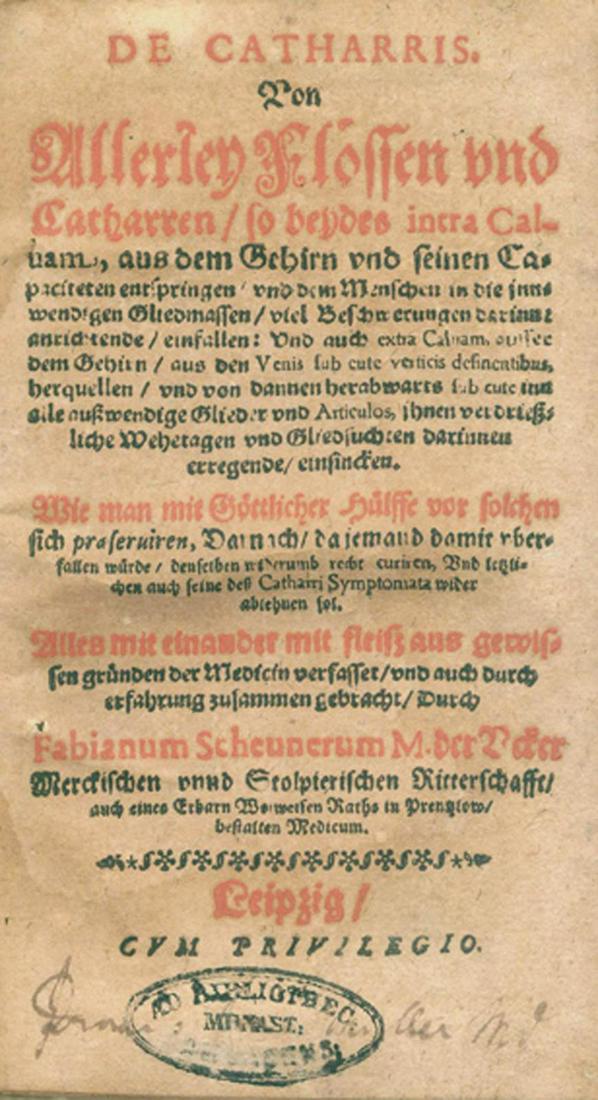 DE CATHARRIS.
Von
Allerley Flössen vnd
Catharren / so beydes intra Cal-
uam, aus dem Gehirn vnd seinen Ca-
paciteten entspringen / vnd dem Menschen in die inne
wendigen Gliedmassen / viel Beschwerungen darinne
anrichtende / einfallen: Vnd auch extra Caluam, ausser
dem Gehirn / aus den Venis sub cute verticis desinentibus,
herquellen / vnd von dannen herabwarts sub cute inn
alle außwendige Glieder vnd Articulos, ihnen verdrieß-
liche Wehetagen vnd Gliedsuchten darinnen
erregende / einsincken.
Wie man mit Göttlicher Hülffe vor solchen
sich præseruiren, Darnach / da jemand damit vber-
fallen würde / denselben widerumb recht curiren, Vnd letzli-
chen auch seine deß Catharri Symptomata wider
ablehnen sol.
Alles mit einander mit fleiß aus gewis-
sen gründen der Medicin verfasset / vnd auch durch
erfahrung zusammen gebracht / Durch
Fabianum Scheunerum M. der Vcker
Merckischen vnnd Stolpierischen Ritterschafft /
auch eines Erbarn Wolweisen Raths in Prentzlow /
bestalten Medicum.
Leipzig /
CVM PRIVILEGIO.
AD BIBLIOTHEC.